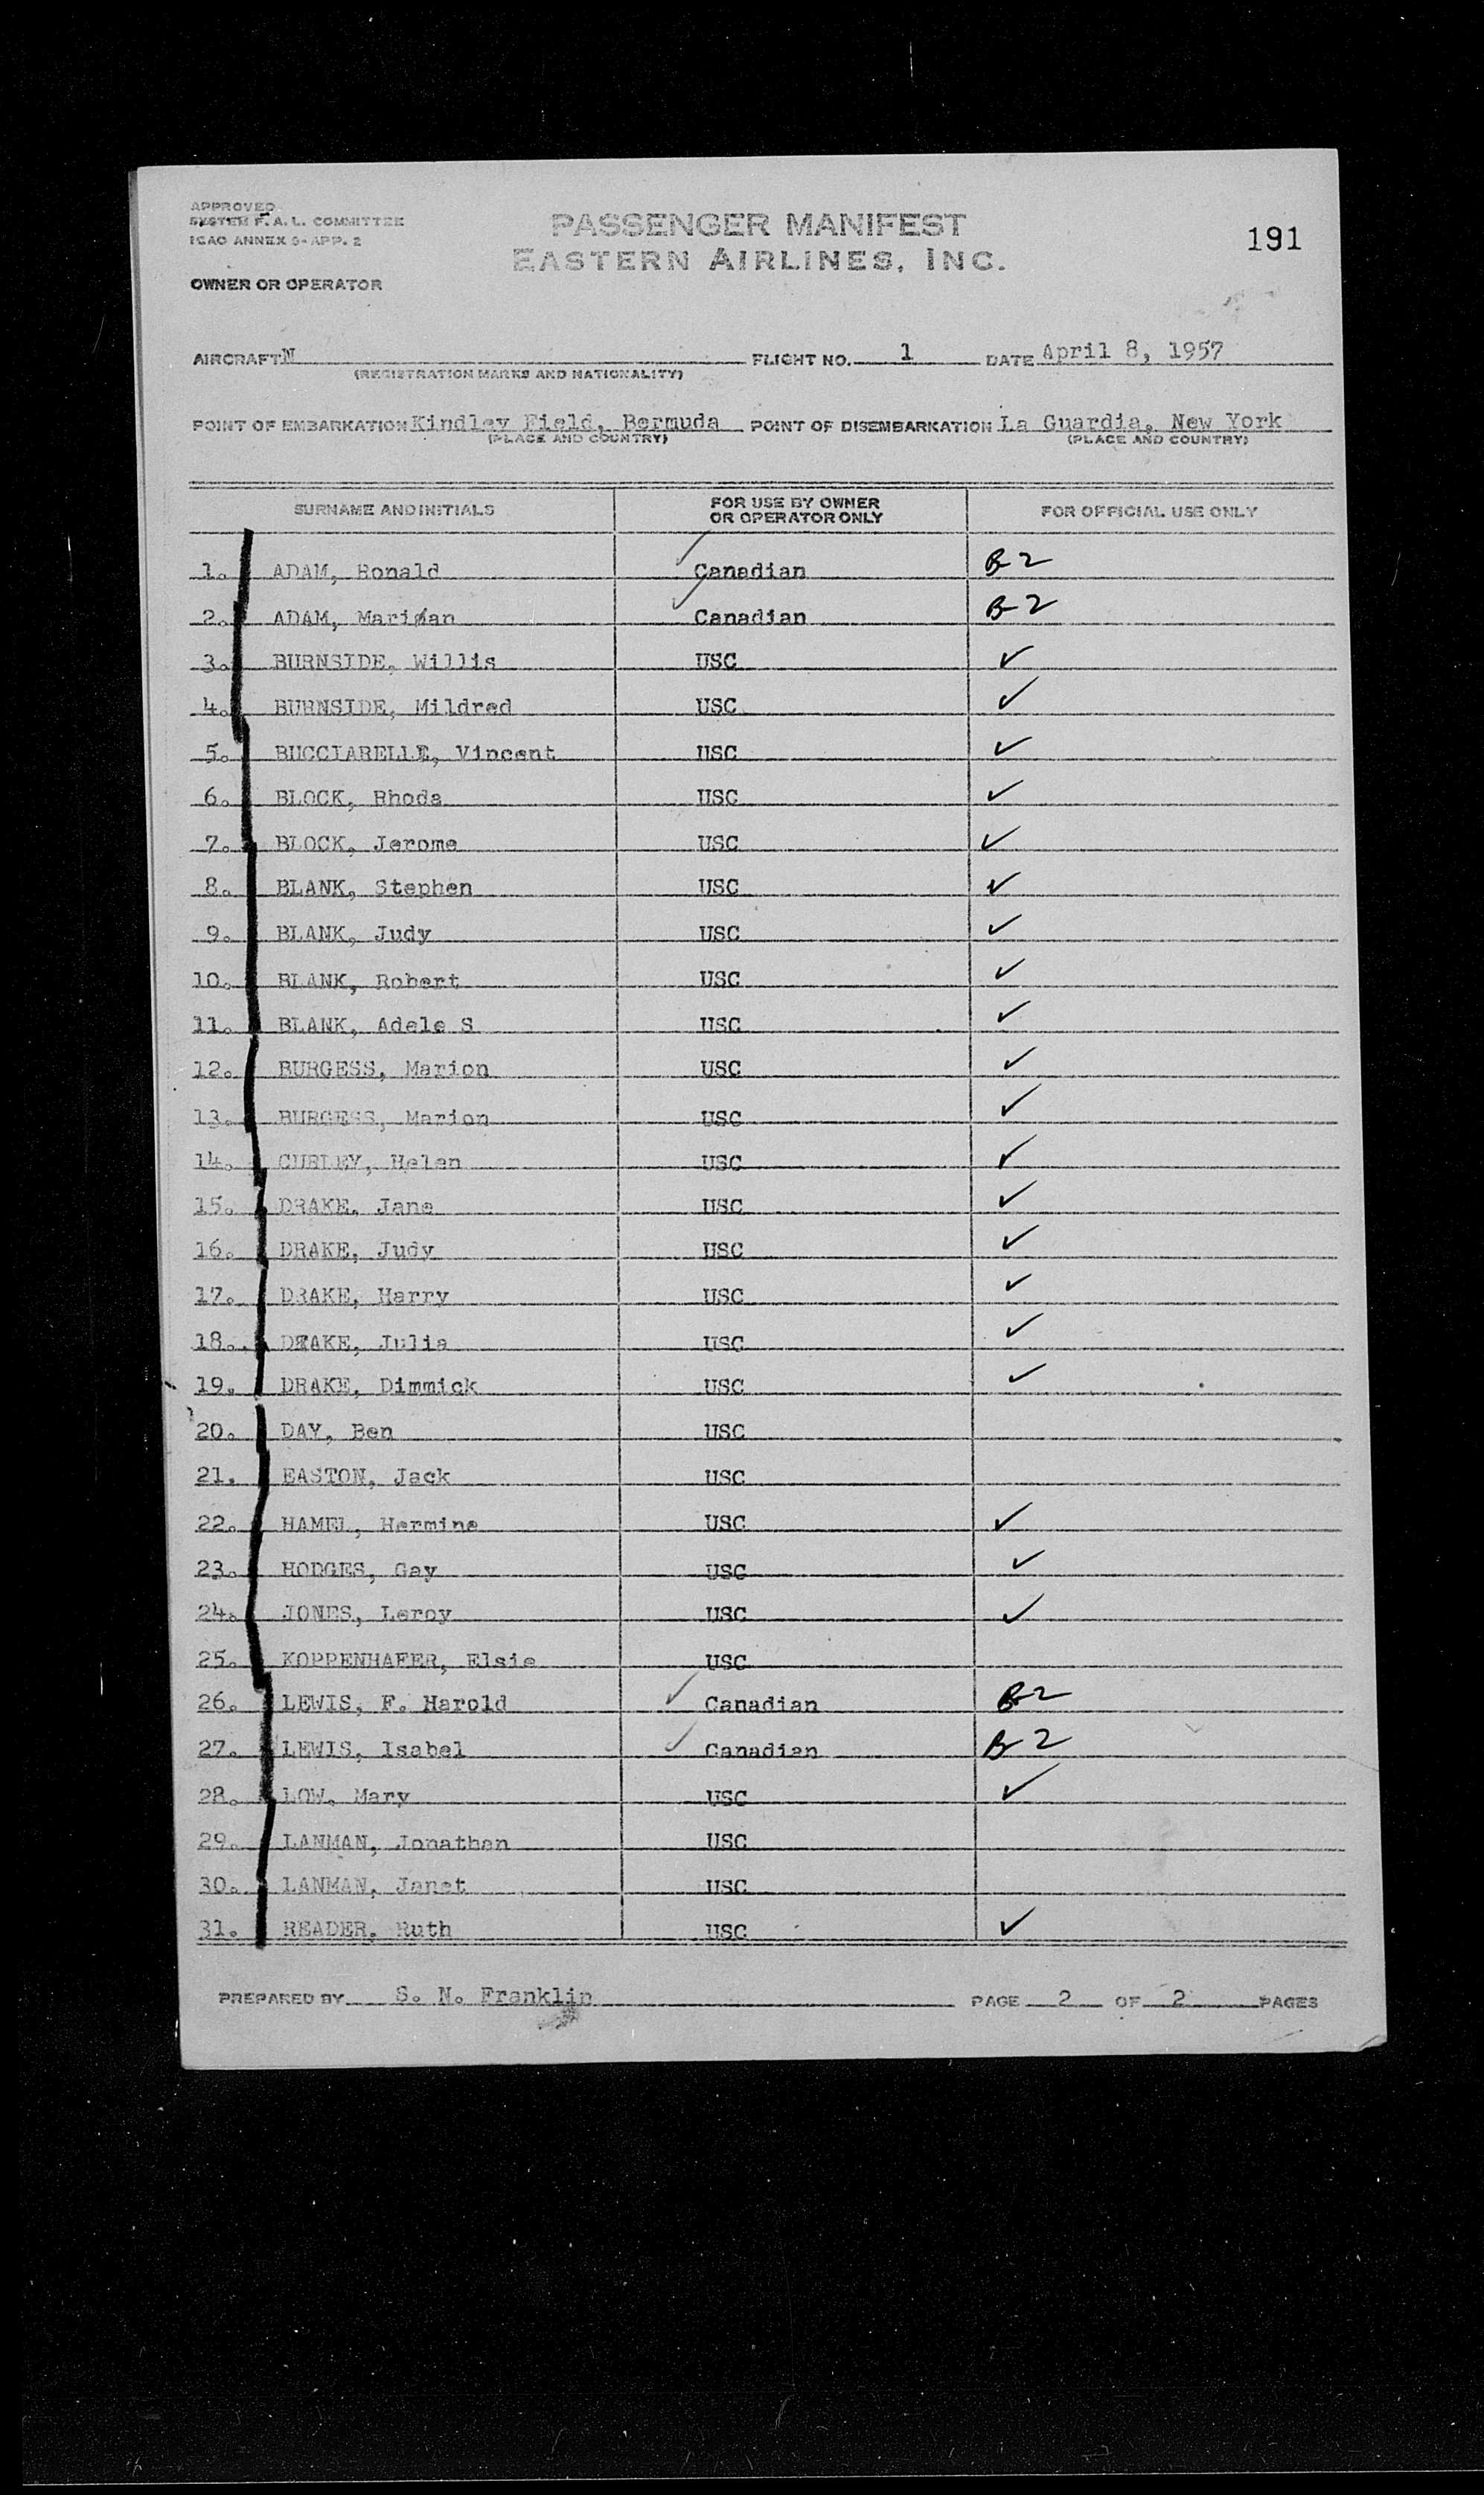 APPROVED
SYSTEM F.A.L. COMMITTEE
ICAO ANNEX 9-APP. 2
PASSENGER MANIFEST
EASTERN AIRLINES, INC.
191
OWNER OR OPERATOR
AIRCRAFT N FLIGHT NO. 1 DATE April 8, 1957
(REGISTRATION MARKS AND NATIONALITY)
POINT OF EMBARKATION Kindley Field, Bermuda POINT OF DISEMBARKATION La Guardia, New York
(PLACE AND COUNTRY) (PLACE AND COUNTRY)
SURNAME AND INITIALS FOR USE BY OWNER OR OPERATOR ONLY FOR OFFICIAL USE ONLY
1. ADAM, Ronald ✓ Canadian B-2
2. ADAM, Marian ✓ Canadian B-2
3. BURNSIDE, Willis USC ✓
4. BURNSIDE, Mildred USC ✓
5. BUCCIARELLI, Vincent USC ✓
6. BLOCK, Rhoda USC ✓
7. BLOCK, Jerome USC ✓
8. BLANK, Stephen USC ✓
9. BLANK, Judy USC ✓
10. BLANK, Robert USC ✓
11. BLANK, Adele S USC ✓
12. BURGESS, Marion USC ✓
13. BURGESS, Marion USC ✓
14. CURLEY, Helen USC ✓
15. DRAKE, Jane USC ✓
16. DRAKE, Judy USC ✓
17. DRAKE, Harry USC ✓
18. DRAKE, Julia USC ✓
19. DRAKE, Dimmick USC ✓
20. DAY, Ben USC
21. EASTON, Jack USC
22. HAMEL, Hermine USC ✓
23. HODGES, Gay USC ✓
24. JONES, Leroy USC ✓
25. KOPPENHAFER, Elsie USC
26. LEWIS, F. Harold ✓ Canadian B-2
27. LEWIS, Isabel ✓ Canadian B-2
28. LOW, Mary USC ✓
29. LANMAN, Jonathan USC
30. LANMAN, Janet USC
31. READER, Ruth USC ✓
PREPARED BY S. N. Franklin PAGE 2 OF 2 PAGES